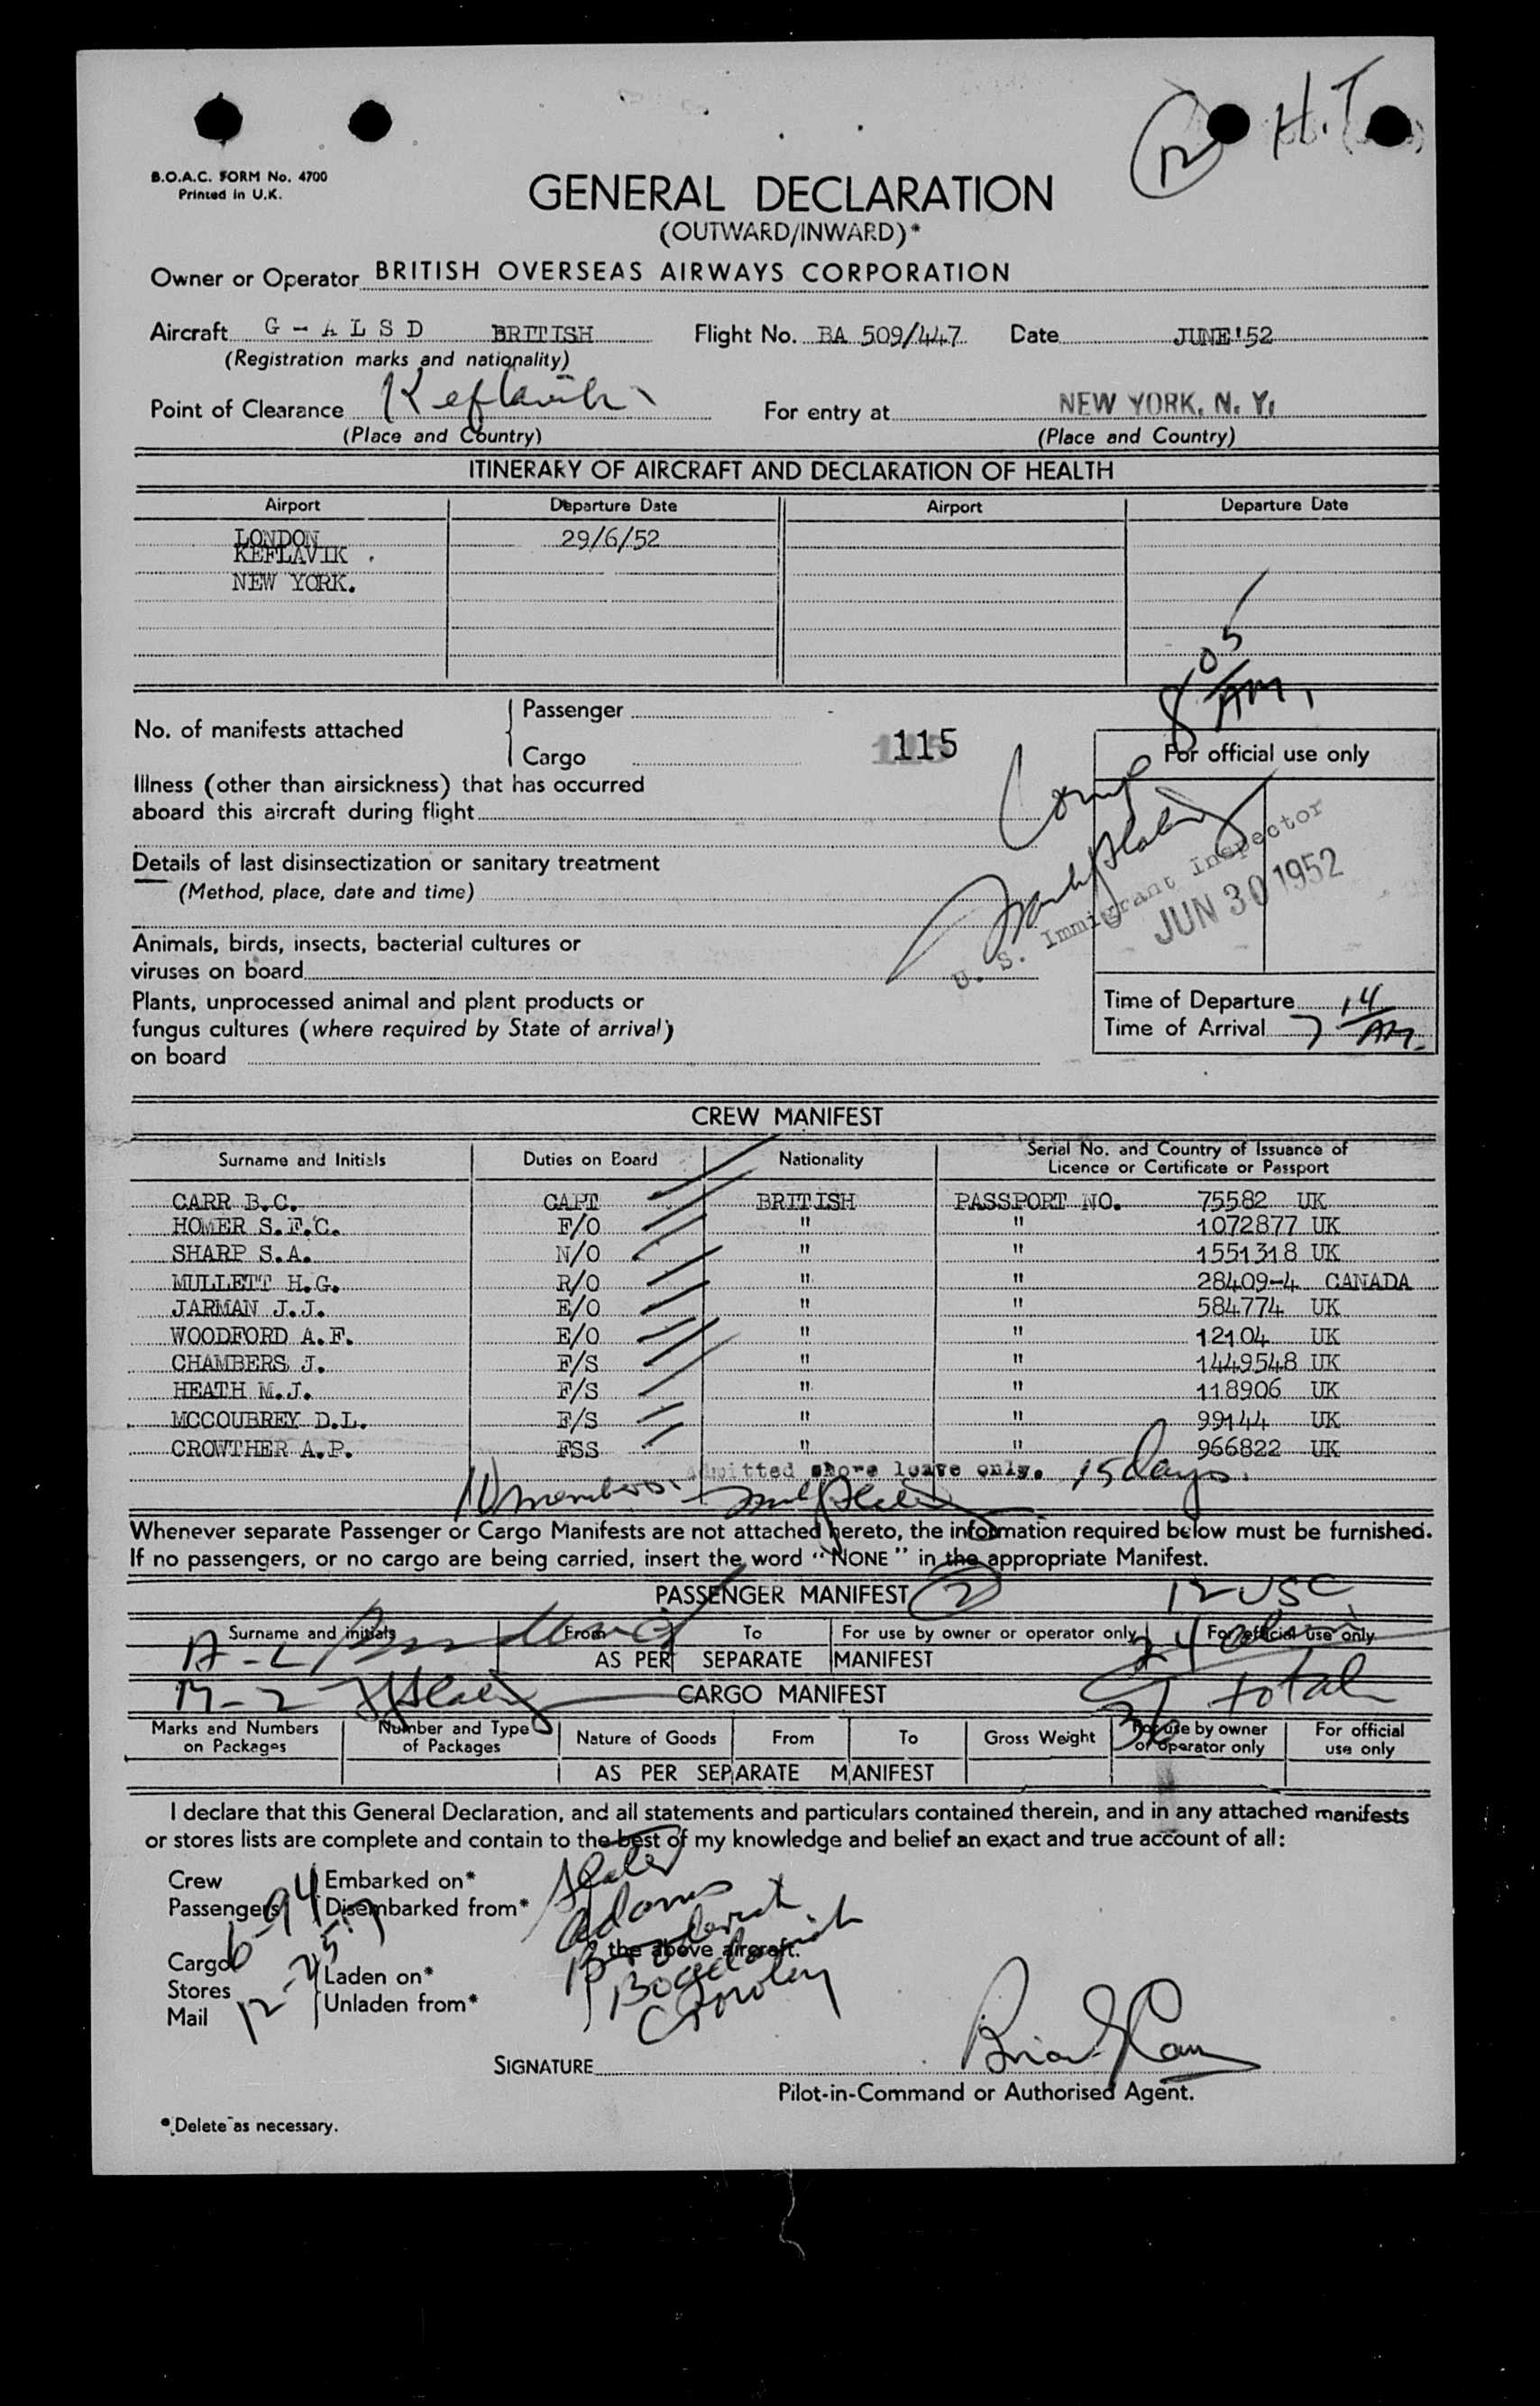 H.T
12
B.O.A.C. FORM No. 4700
Printed in U.K.
GENERAL DECLARATION
(OUTWARD/INWARD)*
Owner or Operator BRITISH OVERSEAS AIRWAYS CORPORATION
Aircraft G - A L S D BRITISH Flight No. BA 509/447 Date JUNE'52
(Registration marks and nationality)
Point of Clearance Keflavik For entry at NEW YORK, N. Y.
(Place and Country) (Place and Country)
ITINERARY OF AIRCRAFT AND DECLARATION OF HEALTH
Airport Departure Date Airport Departure Date
LONDON 29/6/52
KEFLAVIK
NEW YORK.
805 AM
No. of manifests attached Passenger
Cargo
115
For official use only
Illness (other than airsickness) that has occurred
aboard this aircraft during flight
Details of last disinsectization or sanitary treatment
(Method, place, date and time)
U. S. Immigrant Inspector
JUN 30 1952
Animals, birds, insects, bacterial cultures or
viruses on board
Plants, unprocessed animal and plant products or
fungus cultures (where required by State of arrival)
on board
Time of Departure
Time of Arrival 7 14 AM.
CREW MANIFEST
Surname and Initials Duties on Board Nationality Serial No. and Country of Issuance of
Licence or Certificate or Passport
CARR B.C. CAPT BRITISH PASSPORT NO. 75582 UK
HOMER S.F.C. F/O " " 1072877 UK
SHARP S.A. N/O " " 1551318 UK
MULLETT H.G. R/O " " 28409-4 CANADA
JARMAN J.J. E/O " " 584774 UK
WOODFORD A.F. E/O " " 12104 UK
CHAMBERS J. F/S " " 1449548 UK
HEATH M.J. F/S " " 118906 UK
MCCOUBREY D.L. F/S " " 99144 UK
CROWTHER A.P. FSS " " 966822 UK
10 members Admitted shore leave only. 15 days.
Whenever separate Passenger or Cargo Manifests are not attached hereto, the information required below must be furnished.
If no passengers, or no cargo are being carried, insert the word "NONE" in the appropriate Manifest.
PASSENGER MANIFEST 2 12 USC
Surname and initials From To For use by owner or operator only For official use only
24
AS PER SEPARATE MANIFEST
CARGO MANIFEST
36 total
Marks and Numbers on Packages Number and Type of Packages Nature of Goods From To Gross Weight For use by owner or operator only For official use only
AS PER SEPARATE MANIFEST
I declare that this General Declaration, and all statements and particulars contained therein, and in any attached manifests
or stores lists are complete and contain to the best of my knowledge and belief an exact and true account of all:
Crew Embarked on*
Passengers Disembarked from*
Slater
Adams
the above aircraft.
Crowley
Cargo
Stores Laden on*
Mail Unladen from*
SIGNATURE
Pilot-in-Command or Authorised Agent.
*Delete as necessary.